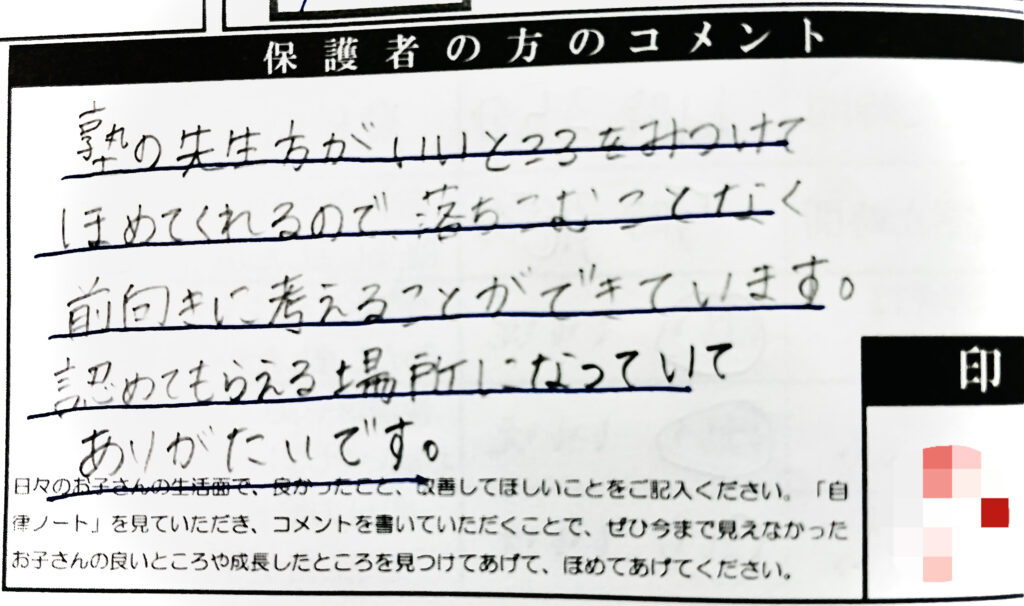 保護者の方のコメント
塾の先生方がいいところをみつけて
ほめてくれるので、落ちこむことなく
前向きに考えることができています。
認めてもらえる場所になっていて
ありがたいです。
印
日々のお子さんの生活面で、良かったこと、改善してほしいことをご記入ください。「自
律ノート」を見ていただき、コメントを書いていただくことで、ぜひ今まで見えなかった
お子さんの良いところや成長したところを見つけてあげて、ほめてあげてください。